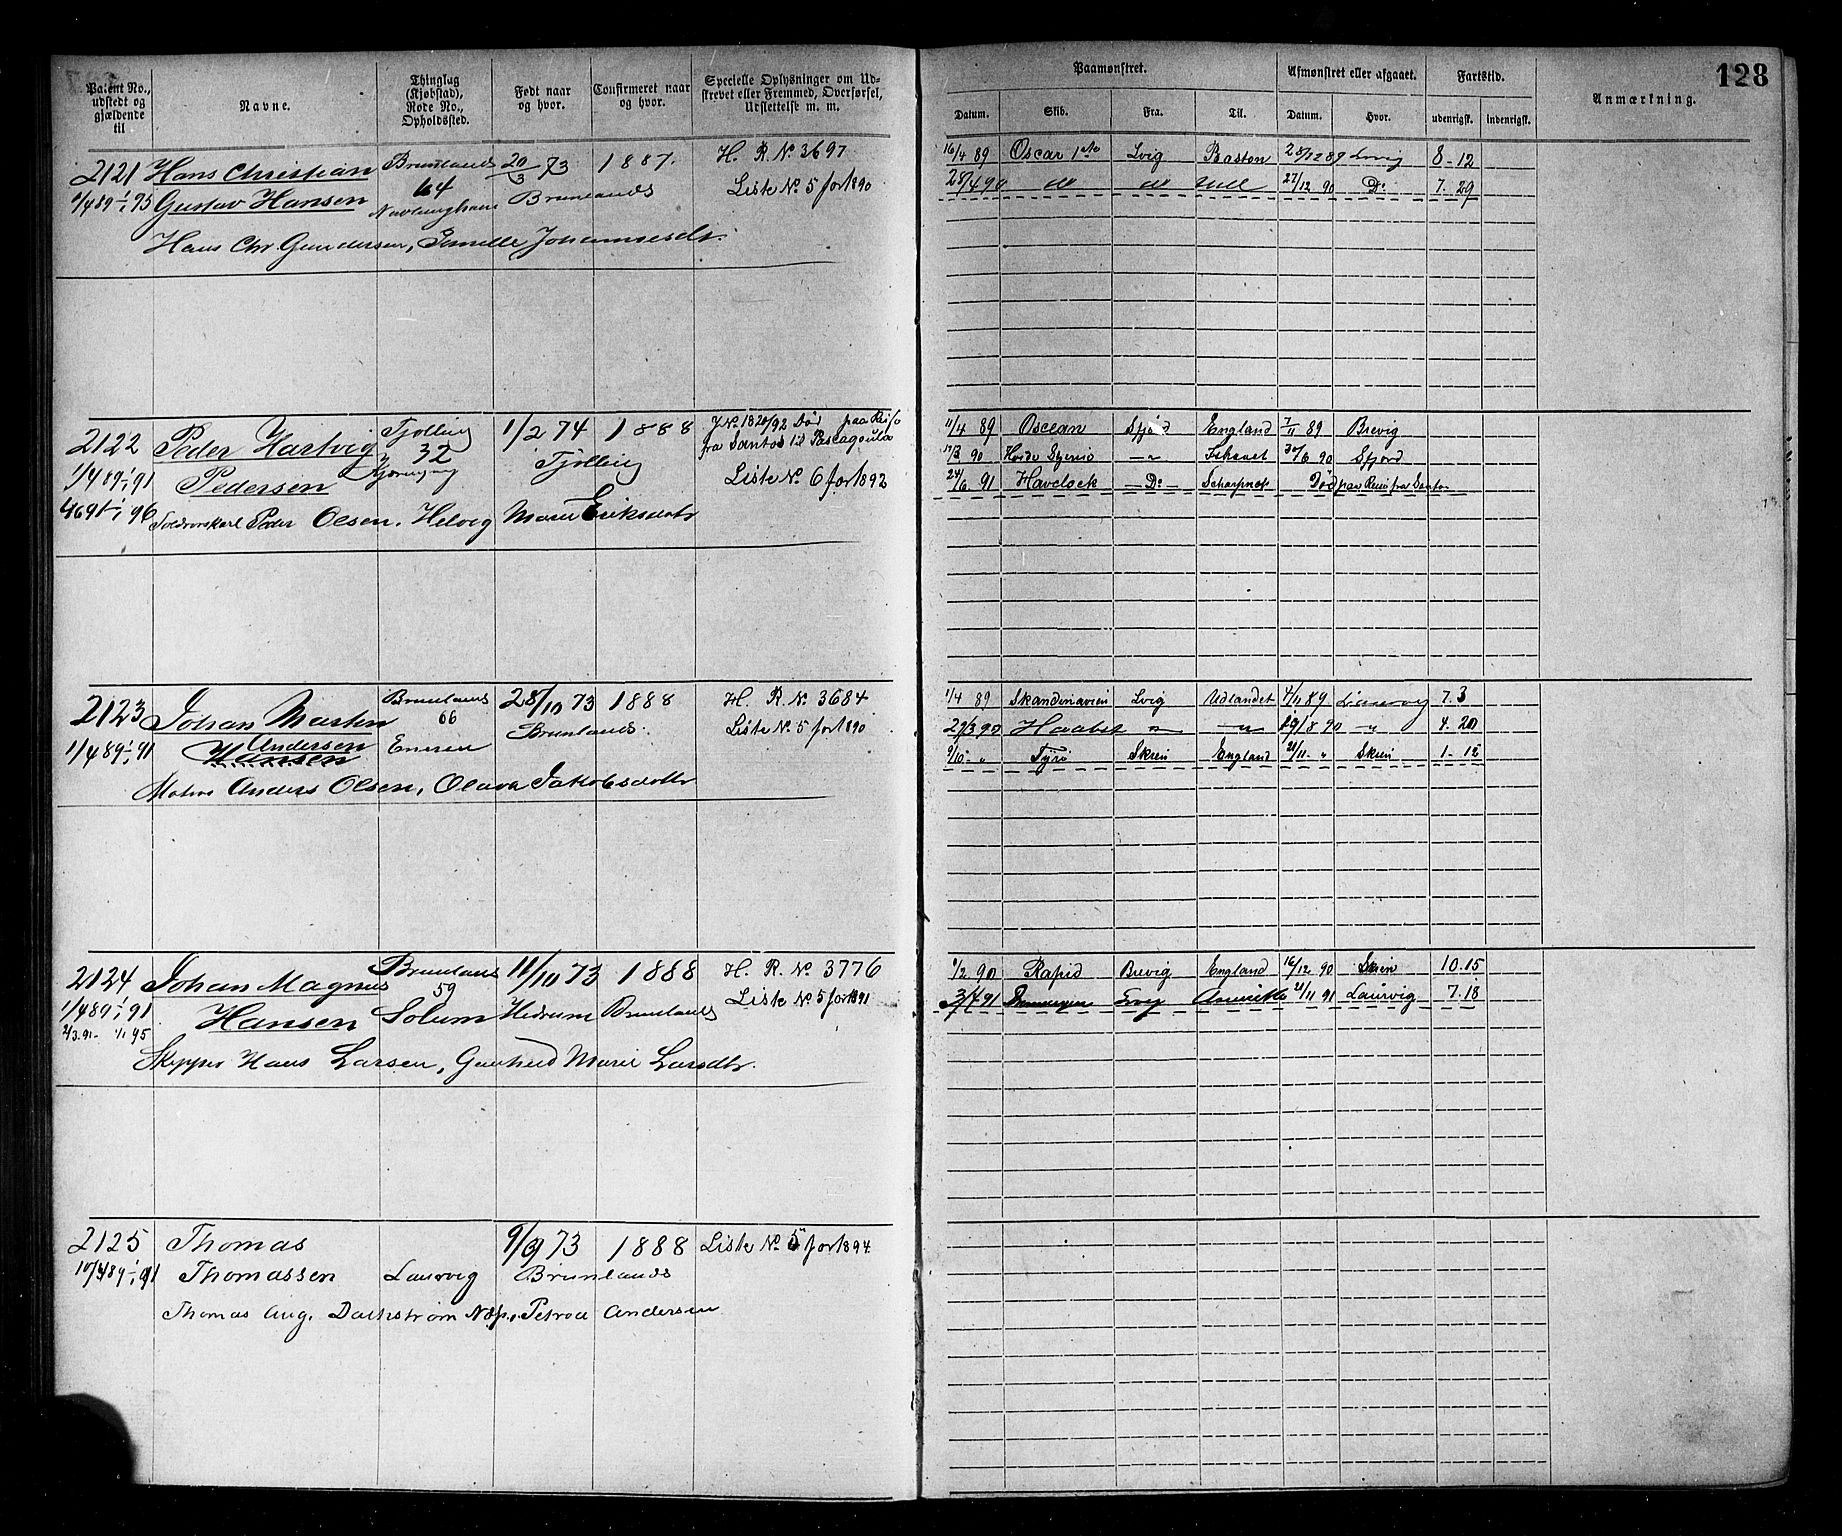 128
Patent No., udstedt og gjældende til
Navne.
Thinglag (Kjøbstad), Rode No., Opholdssted.
Født naar og hvor.
Confirmeret naar og hvor.
Specielle Oplysninger om Udskrevet eller Fremmed, Overførsel, Udslettelse m. m.
Paamønstret.
Afmønstret eller afgaaet.
Fartstid.
Anmærkning.
Datum. Skib. Fra. Til. Datum. Hvor. udenrigsk. indenrigsk.
2121 Hans Christian Brunlanes 20/3 73 1887. H. R. No 3697
1/4 89 1/1 95 Gustav Hansen 64 Brunlanes Liste No 5 for 1890
Hans Chr. Gundersen, Johannesdtr.
16/4 89 Oscar 1ste Lvig Boston 28/12 89 Lvig 8-12
28/4 90 do do Hull 27/12 90 Do 7. 29
2122 Peder Hartvig Tjølling 1/2 74 1888 J No 1820/92 Død paa Reise
1/4 89 1/1 91 Pedersen 32 Tjølling fra Santos til Pascagoula
Liste No 6 for 1892
1/1 96 Peder Olsen, Helvig Marie Eriksdatr
11/4 89 Oscean Sfjord England 7/11 89 Brevig
90 90 Sfjord
24/6 91 Havelock Do Død paa Reise fra Santos
2123 Johan Martin Brunlanes 28/10 73 1888 H. R. No 3684
Andersen 66 Brunlanes Liste No 5 for 1890
1/4 89 1/1 91 Hansen
Anders Olsen, Olava Jakobsdatter
1/4 89 Skandinavien Lvig Udlandet 4/11 89 Laurvig 7. 3
29/3 90 Haabet " " 19/8 90 " 4. 20
9/10 " Tyri Skien England 21/11 " Skien 1-12
2124 Johan Magnus Brunlanes 11/10 73 1888 H. R. No 3776
59 Liste No 5 for 1891
1/4 89 1/1 91 Hansen Solum Hedrum Brunlanes
2/3 91 1/1 95
Skipper Hans Larsen, Gunhild Marie Larsdtr.
1/2 90 Rapid Brevig England 16/12 90 Skien 10.15
3/4 91 Lvig 21/11 91 Laurvig 7.18
2125 Thomas 9/9 73 1888 Liste No 5 for 1894
10/4 89 1/1 91 Thomassen Laurvig Brunlanes
Thomas Aug. Petrea Andersen